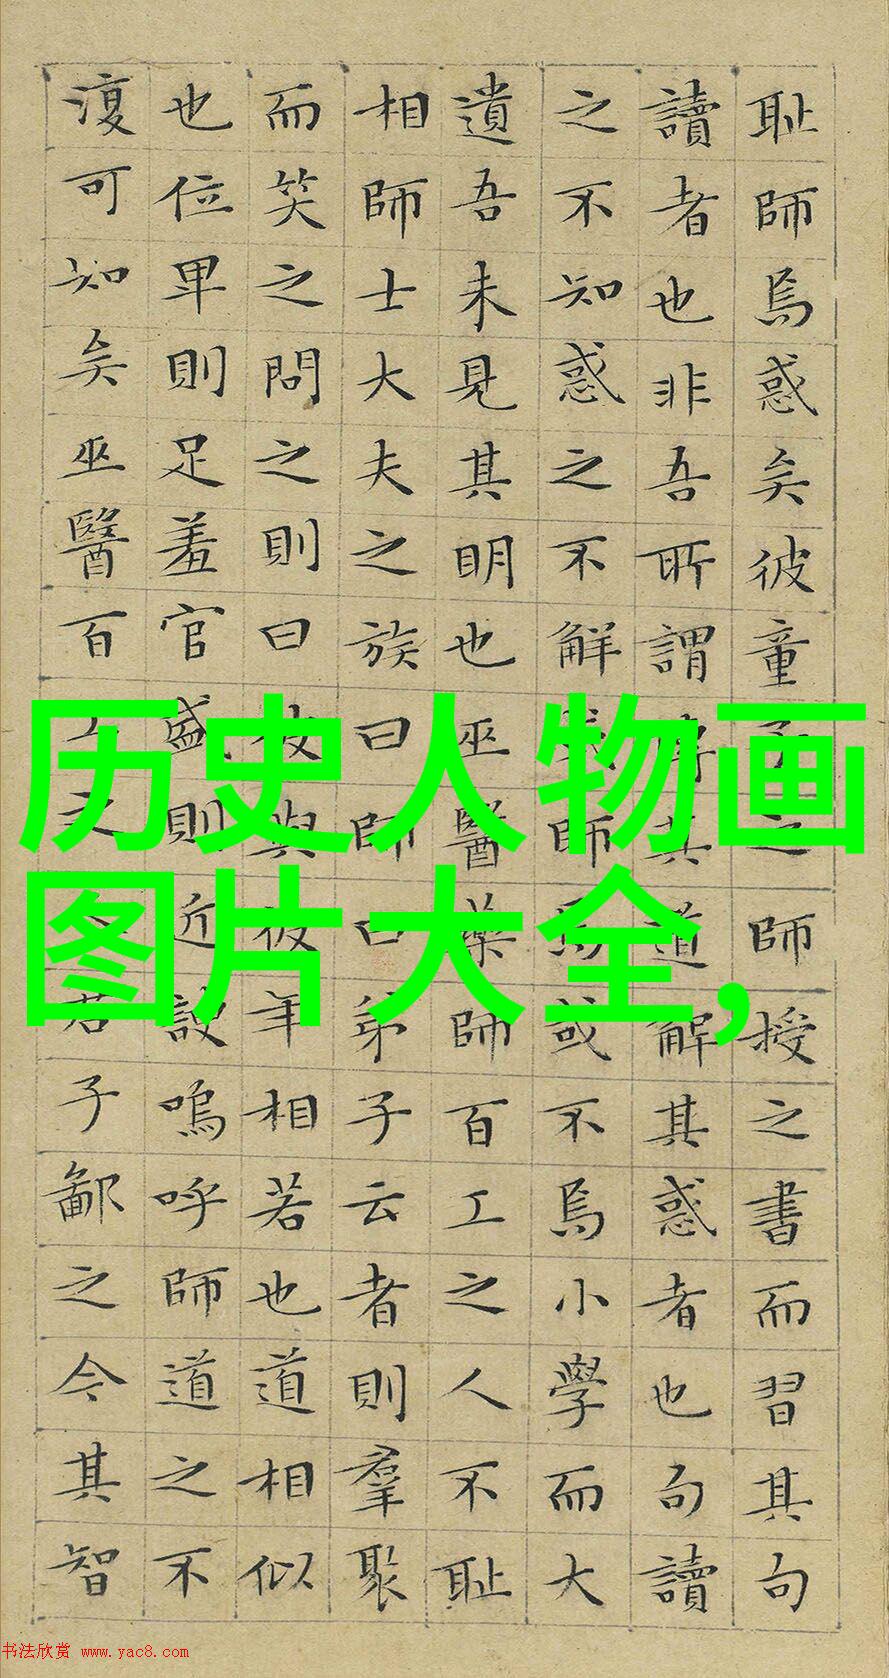 耻師焉惑矣彼童子之師授之書而習其句
讀者也非吾所謂傳其道解其惑者也句讀
之不知惑之不解或師焉或不焉小學而大
遺吾未見其明也巫醫藥師百工之人不耻
相師士大夫之族曰師曰弟子云者則羣聚
而笑之問之則曰彼與彼年相若也道相似
也位卑則足羞官盛則近諛嗚呼師道之不
復可知矣巫醫百工之君子鄙之今其智
历史人物画
图片大全,
书法欣赏 www.yac8.com